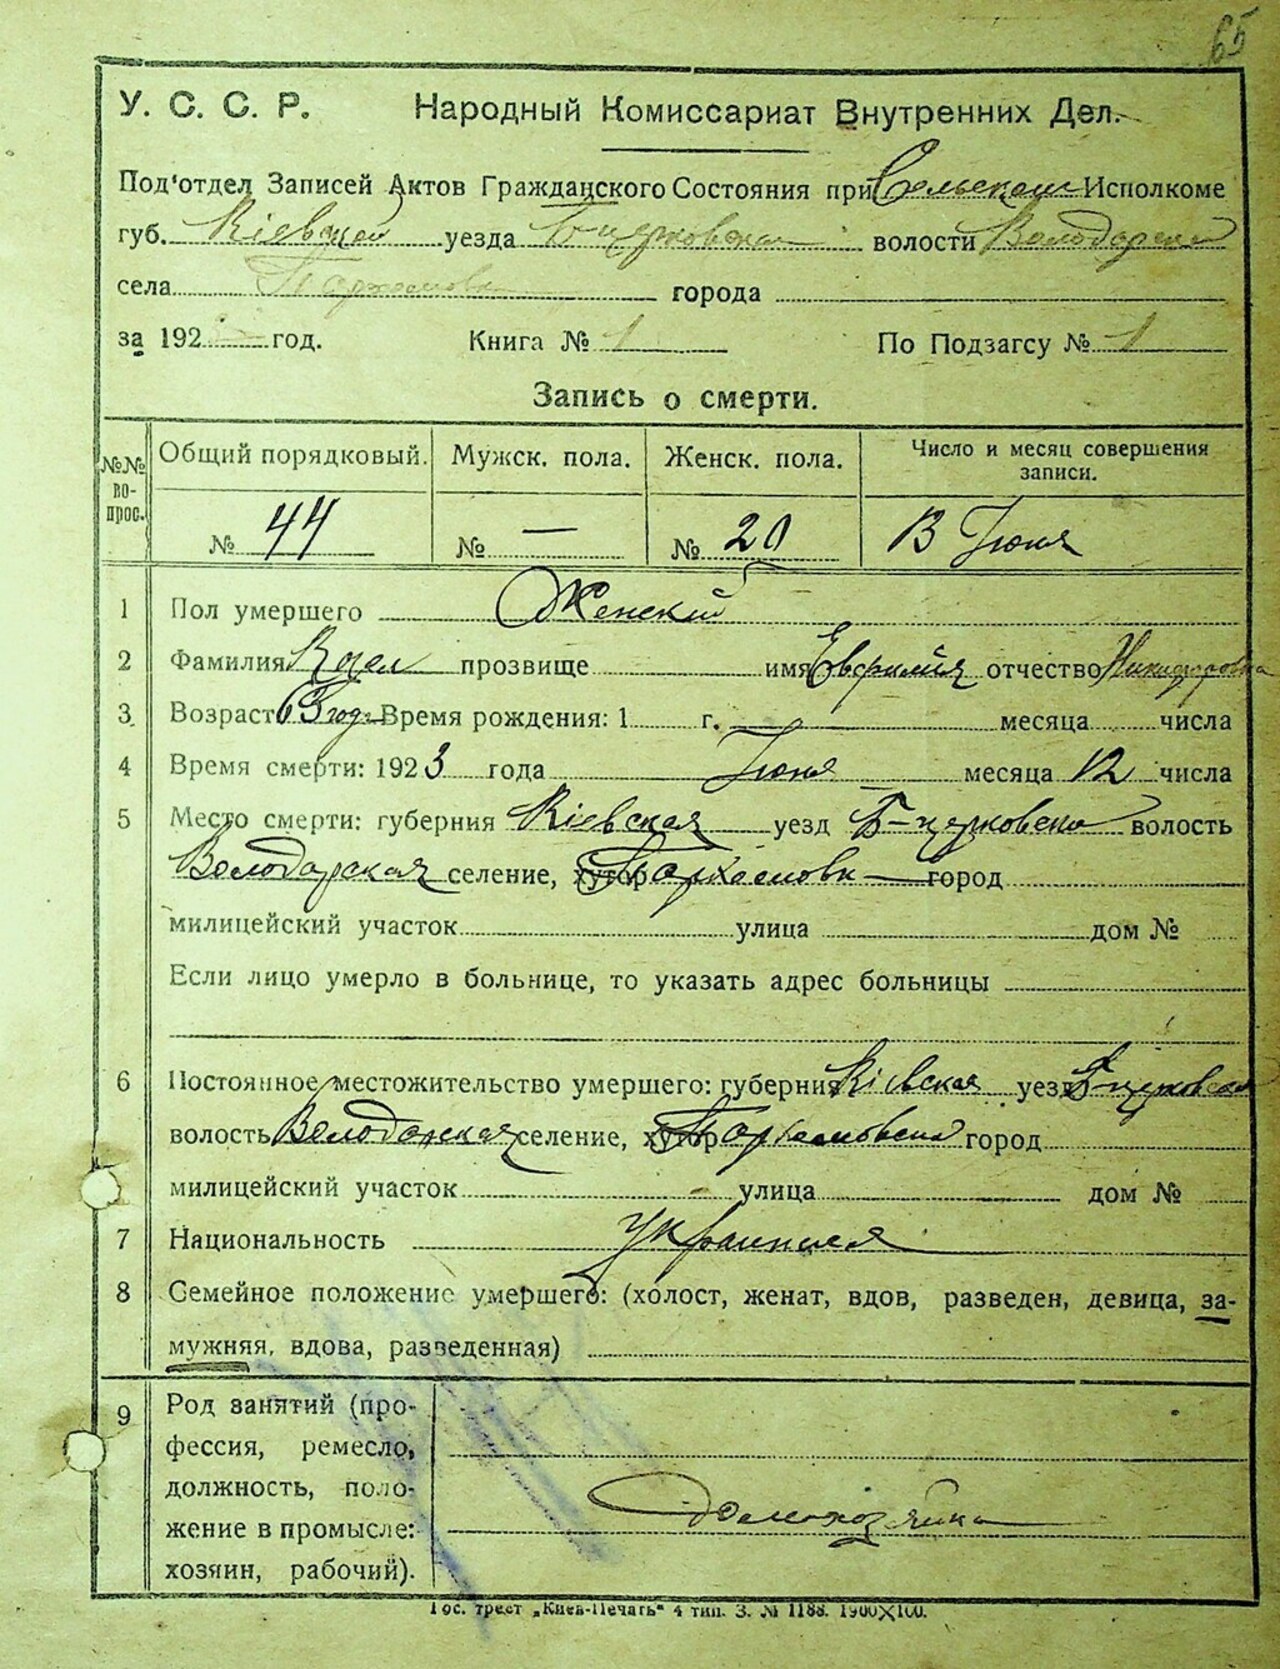 65
У. С. С. Р. Народный Комиссариат Внутренних Дел.
Под'отдел Записей Актов Гражданского Состояния при Сельском Исполкоме
губ. Кіевской уезда Б-церковская волости Володарской
села Пархомовка города
за 192 год. Книга № 1 По Подзагсу № 1
Запись о смерти.
№№ во- прос. Общий порядковый. Мужск. пола. Женск. пола. Число и месяц совершения записи.
№ 44 № — № 20 Іюня
1 Пол умершего Женский
2 Фамилия прозвище имя Евфимія отчество Никифоровна
3 Возраст 63 год. Время рождения: 1 г. месяца числа
4 Время смерти: 1923 года Іюня месяца 12 числа
5 Место смерти: губерния Кіевская уезд Б-церковска волость
Володарская селение, хутор Пархомовк город
милицейский участок улица дом №
Если лицо умерло в больнице, то указать адрес больницы
6 Постоянное местожительство умершего: губерния Кіевская уезд Б-церковская
волость Володарская селение, хутор город
милицейский участок улица дом №
7 Национальность
8 Семейное положение умершего: (холост, женат, вдов, разведен, девица, за-
мужняя, вдова, разведенная)
9 Род занятий (про-
фессия, ремесло,
должность, поло-
жение в промысле: Домохозяйка
хозяин, рабочий).
Гос. трест „Киев-Печать“ 4 тип. З. № 1188. 1900×100.